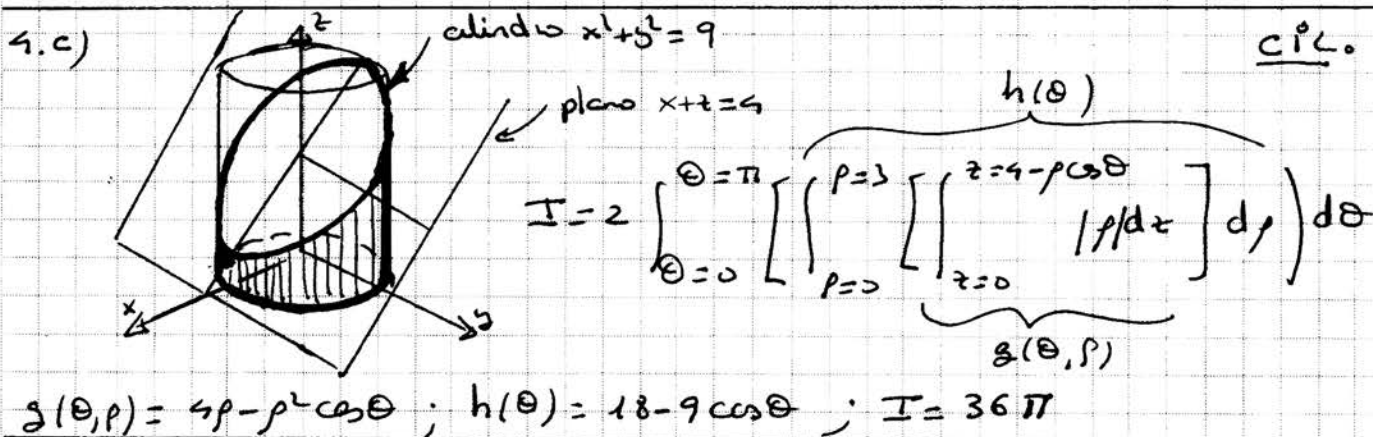 4.c)
z
cilindro x²+y²=9
cil.
plano x+z=4
h(θ)
I=2 ∫_{θ=0}^{θ=π} [ ∫_{ρ=0}^{ρ=3} [ ∫_{z=0}^{z=4-ρcosθ} |ρ|dz ] dρ ) dθ
x
y
g(θ,ρ)
g(θ,ρ)= 4ρ-ρ²cosθ ; h(θ)= 18-9cosθ ; I= 36π